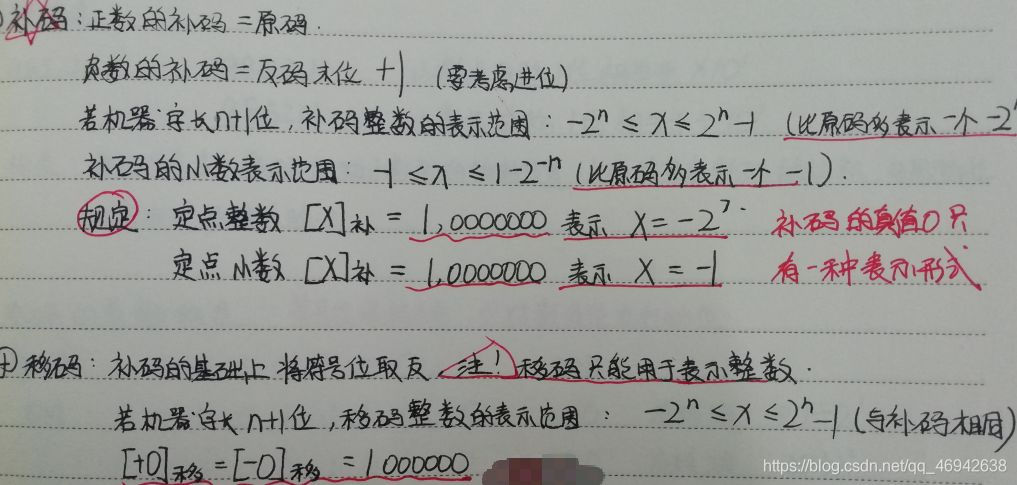 补码：正数的补码=原码.
负数的补码=反码末位 +1 (要考虑进位)
若机器字长n+1位, 补码整数的表示范围: -2ⁿ ≤ x ≤ 2ⁿ-1 (比原码多表示一个 -2ⁿ
补码的小数表示范围: -1 ≤ x ≤ 1-2⁻ⁿ (比原码多表示一个 -1).
规定: 定点整数 [X]补 = 1,0000000 表示 X=-2⁷. 补码的真值0只
定点小数 [X]补 = 1,0000000 表示 X = -1 有一种表示形式
移码: 补码的基础上将符号位取反. 注! 移码只能用于表示整数.
若机器字长 n+1位, 移码整数的表示范围: -2ⁿ ≤ x ≤ 2ⁿ-1 (与补码相同)
[+0]移 = [-0]移 = 1000000
https://blog.csdn.net/qq_46942638